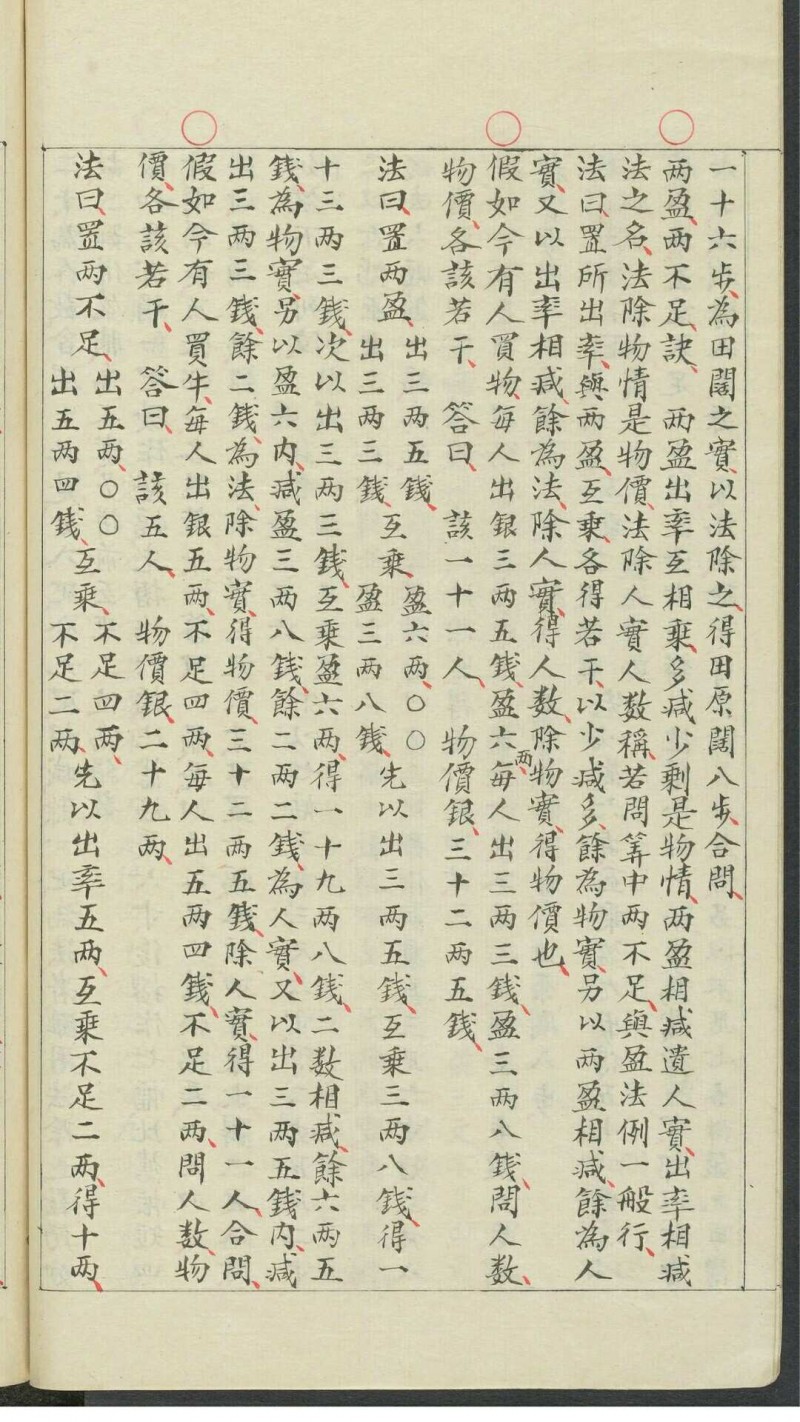 一十六步、為田闊之實、以法除之、得田原闊八步、合問、
两盈两不足訣、　两盈出率互相乗、多减少剩是物情、两盈相减遺人實、出率相减
法之名、法除物情是物價、法除人實人数稱、若問筭中两不足、與盈法例一般行、
法曰、置所出率、與两盈、互乗、各得若干、以少减多、餘為物實、另以两盈相减、餘為人
實、又以出率相减、餘為法、除人實、得人数、除物實、得物價也、
假如今有人買物、每人出銀三两五錢、盈六两、每人出三两三錢、盈三两八錢、問人数、
物價、各該若干、　答曰、　該一十一人、　物價銀、三十二两五錢、
法曰、置两盈、出三两五錢、出三两三錢、互乗、盈六两、〇〇盈三两八錢、先以出三两五錢、互乗三两八錢、得一
十三两三錢、次以出三两三錢、互乗盈六两、得一十九两八錢、二数相减、餘六两五
錢、為物實、另以盈六内、减盈三两八錢、餘二两二錢、為人實、又以出三两五錢内、减
出三两三錢、餘二錢、為法、除物實、得物價、三十二两五錢、除人實、得一十一人、合問、
假如今有人買牛、每人出銀五两、不足四两、每人出五两四錢、不足二两、問人数、物
價、各該若干、　答曰、　該五人、　物價銀、二十九两、
法曰、置两不足、出五两、〇〇出五两四錢、互乗、不足四两、不足二两、先以出率五两、互乗不足二两、得十两、